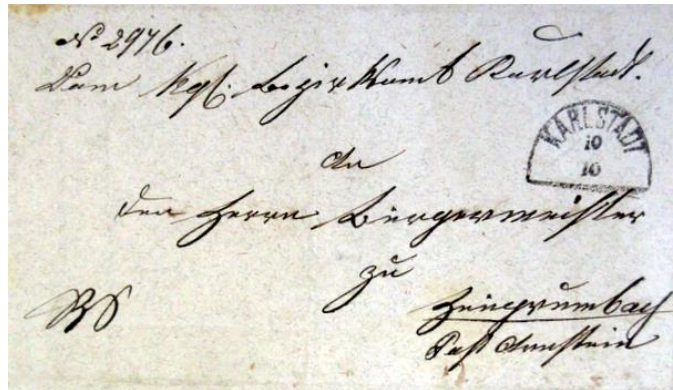 № 2976.
Vom Kgl. Bezirksamt Karlstadt.
KARLSTADT
10
10
An
den Herrn Bürgermeister
zu
RS
Heugrumbach
Post Arnstein